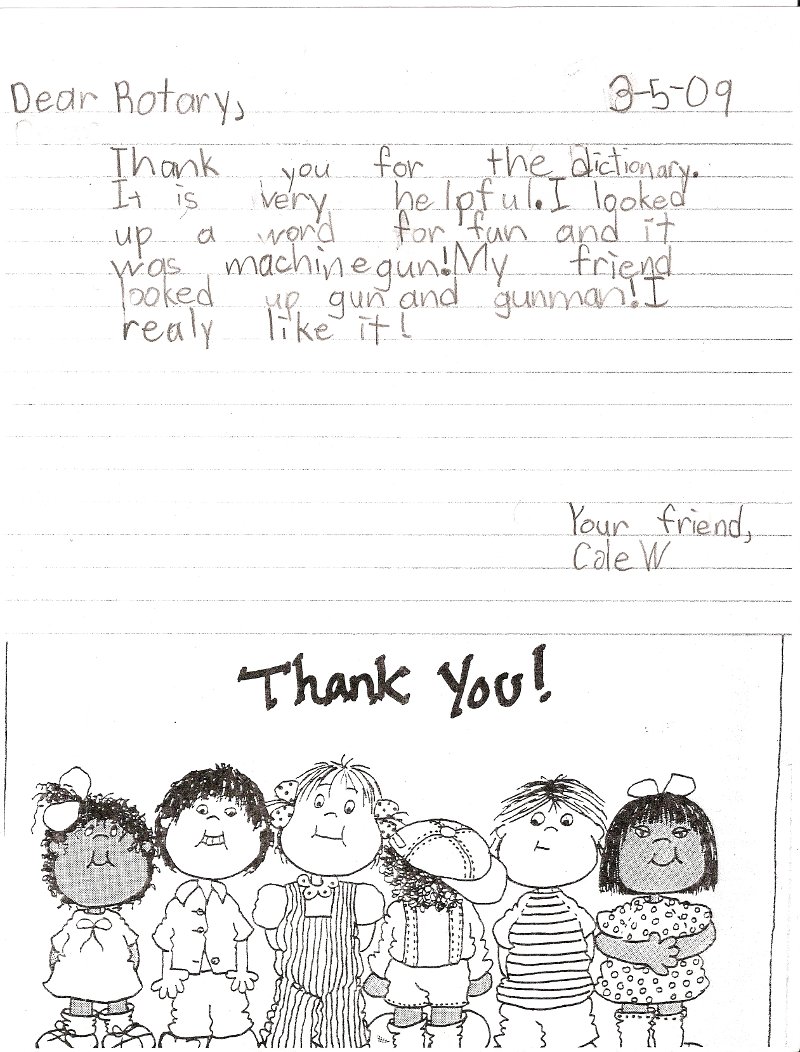 Dear Rotary, 3-5-09
Thank you for the dictionary.
It is very helpful. I looked
up a word for fun and it
was machinegun! My friend
looked up gun and gunman! I
realy like it!
Your friend,
Cole W
Thank You!